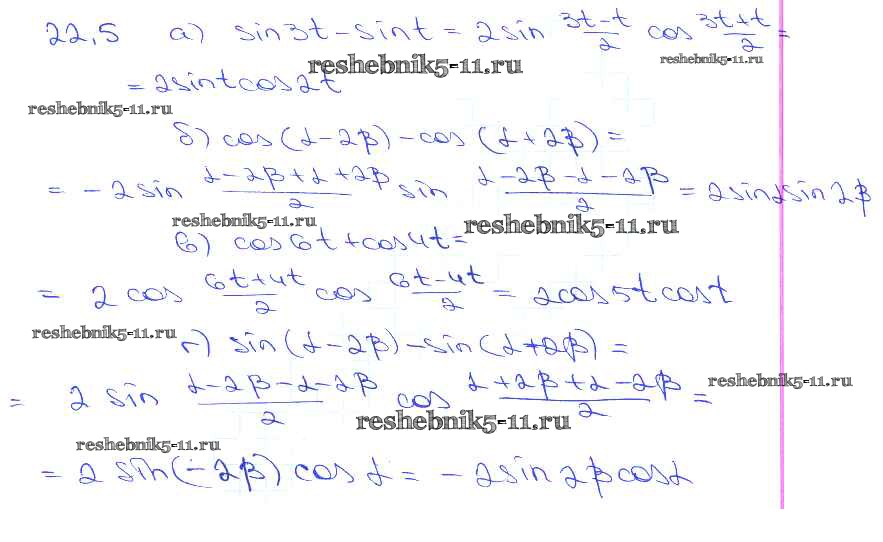 22,5 а) sin3t - sint = 2sin (3t-t)/2 cos (3t+t)/2 =
reshebnik5-11.ru reshebnik5-11.ru
= 2sintcos2t
reshebnik5-11.ru
б) cos(α-2β)-cos(α+2β)=
= -2sin (α-2β+α+2β)/2 sin (α-2β-α-2β)/2 = 2sinαsin2β
reshebnik5-11.ru reshebnik5-11.ru
в) cos6t+cos4t=
= 2cos (6t+4t)/2 cos (6t-4t)/2 = 2cos5tcost
reshebnik5-11.ru
г) sin(α-2β)-sin(α+2β)=
= 2 sin (α-2β-α-2β)/2 cos (α+2β+α-2β)/2 =
reshebnik5-11.ru
reshebnik5-11.ru
reshebnik5-11.ru
= 2 sin(-2β) cos α = -2sin2βcosα